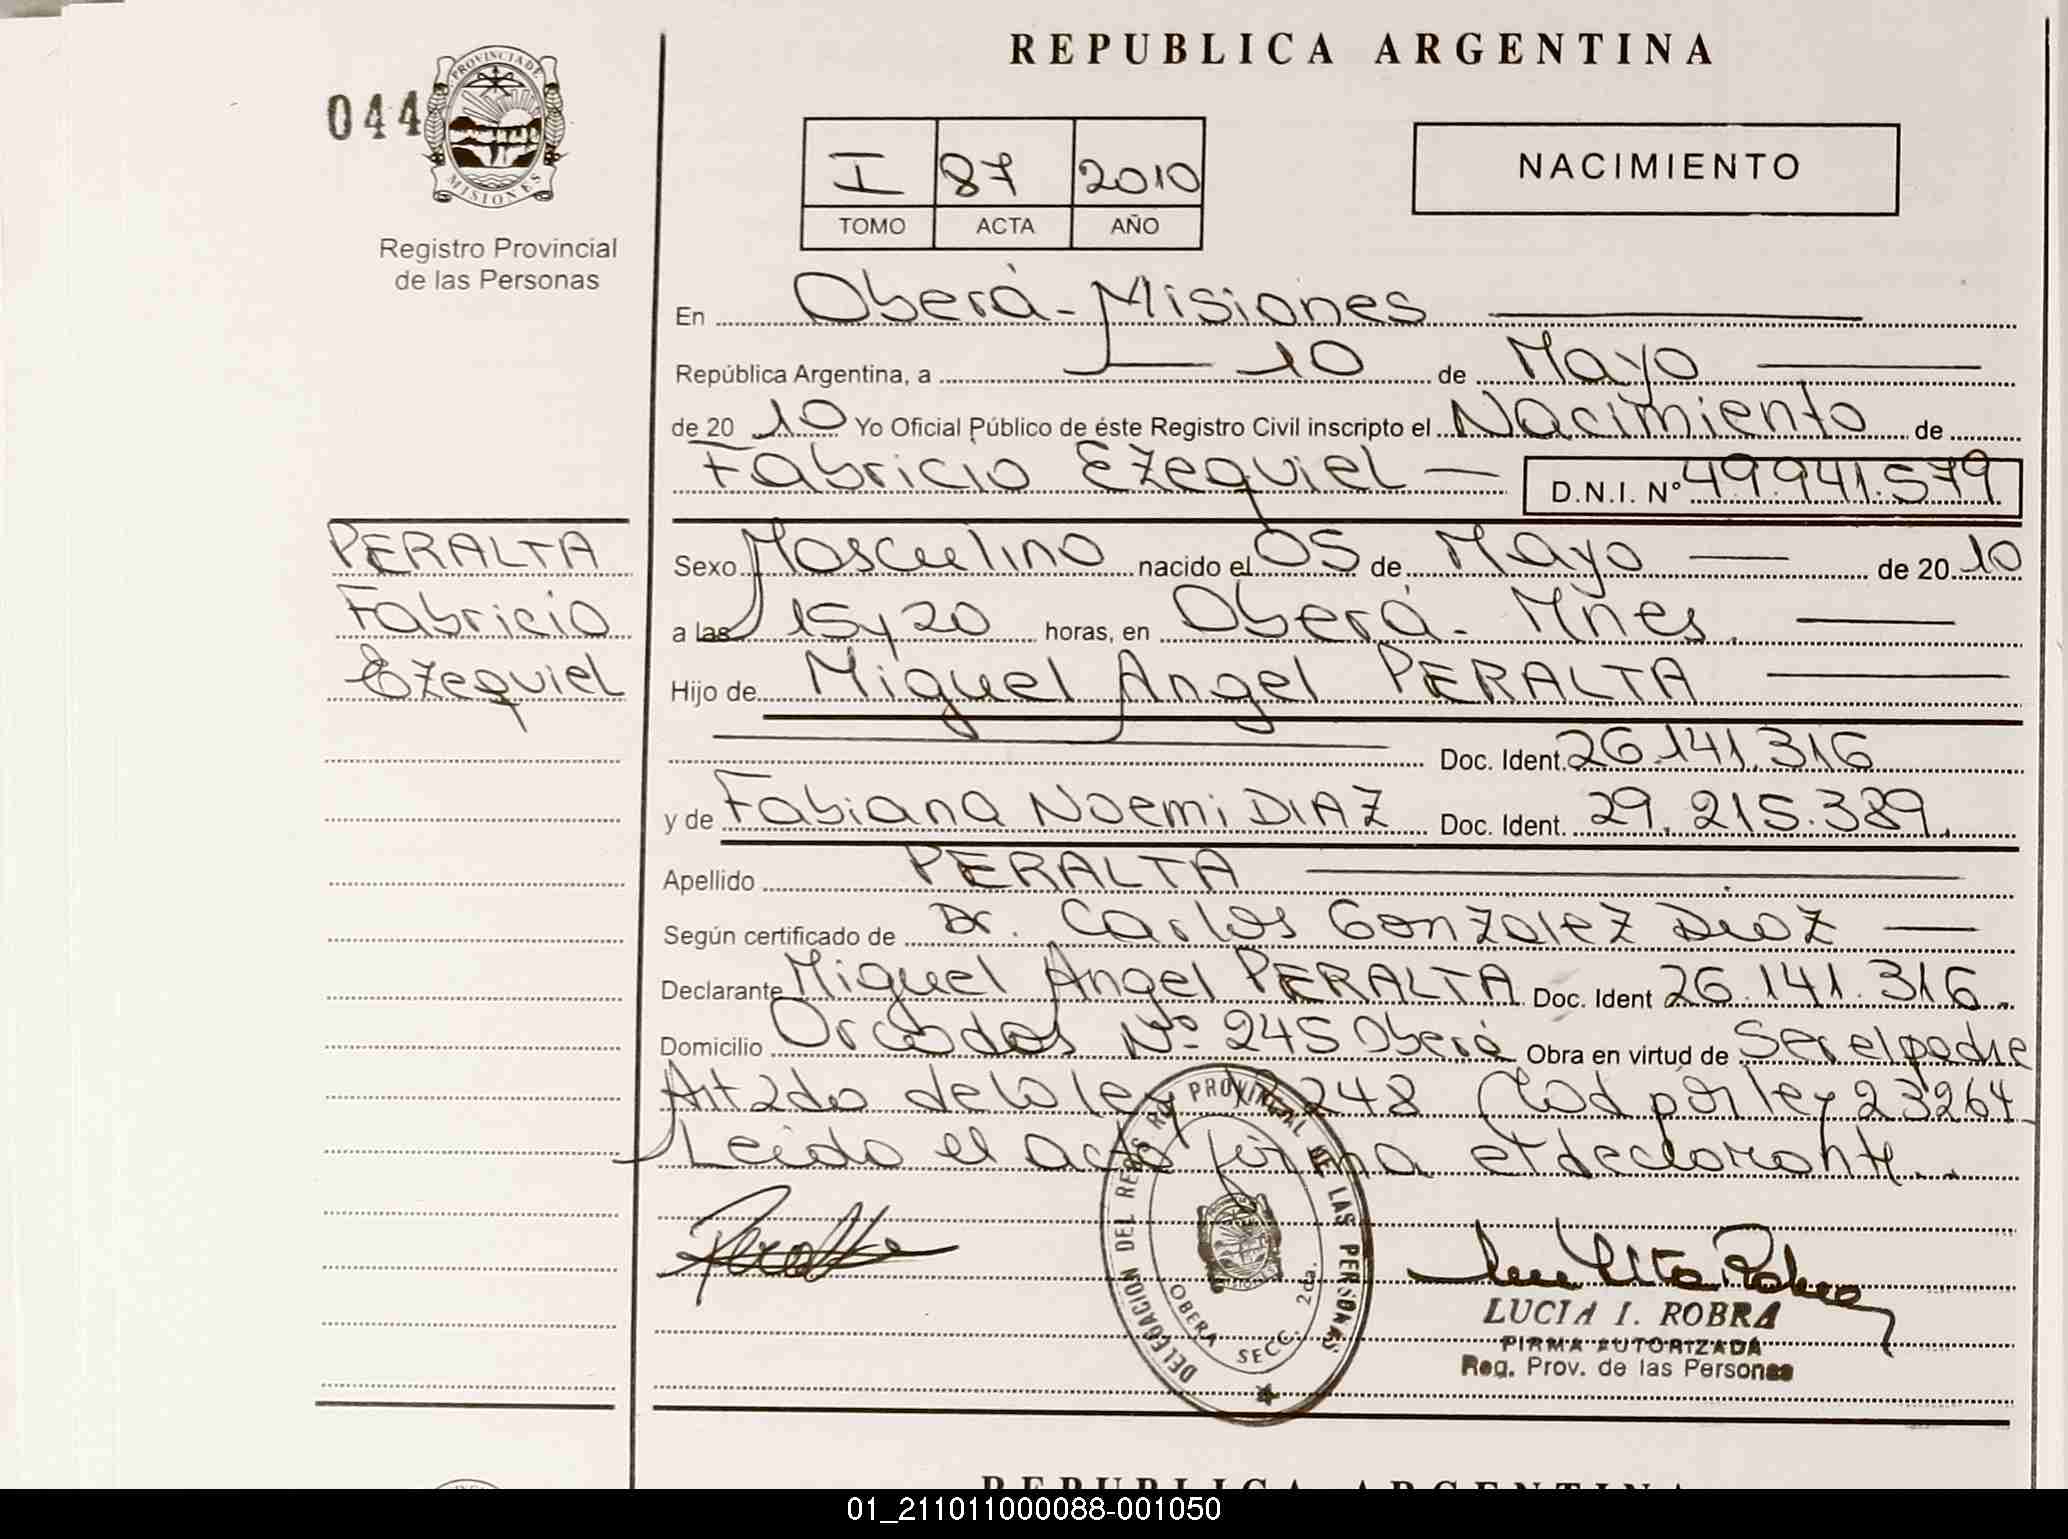 REPUBLICA ARGENTINA
044
PROVINCIA DE MISIONES
Registro Provincial
de las Personas
I 87 2010
TOMO ACTA AÑO
NACIMIENTO
En Oberá - Misiones
República Argentina, a 10 de Mayo
de 20 10 Yo Oficial Público de éste Registro Civil inscripto el Nacimiento de
Fabricio Ezequiel D.N.I. Nº 49.941.579
PERALTA
Fabricio
Ezequiel
Sexo Masculino nacido el 05 de Mayo de 20 10
a las 15 y 20 horas, en Oberá - Mnes.
Hijo de Miguel Angel PERALTA
Doc. Ident. 26.141.316
y de Fabiana Noemi DIAZ Doc. Ident. 29.215.389.
Apellido PERALTA
Según certificado de Dr. Carlos Gonzalez Diaz
Declarante Miguel Angel PERALTA Doc. Ident 26.141.316.
Domicilio Orcadas Nº 245 Oberá Obra en virtud de Ser el padre
Art 2do de la ley 18248 Mod por ley 23264
Leido el acta firma el declarante..
Peralta
DELEGACION DEL REG. PROVINCIAL DE LAS PERSONAS
OBERA SECC. 2da.
LUCIA I. ROBRA
FIRMA AUTORIZADA
Reg. Prov. de las Personas
REPUBLICA ARGENTINA
01_211011000088-001050